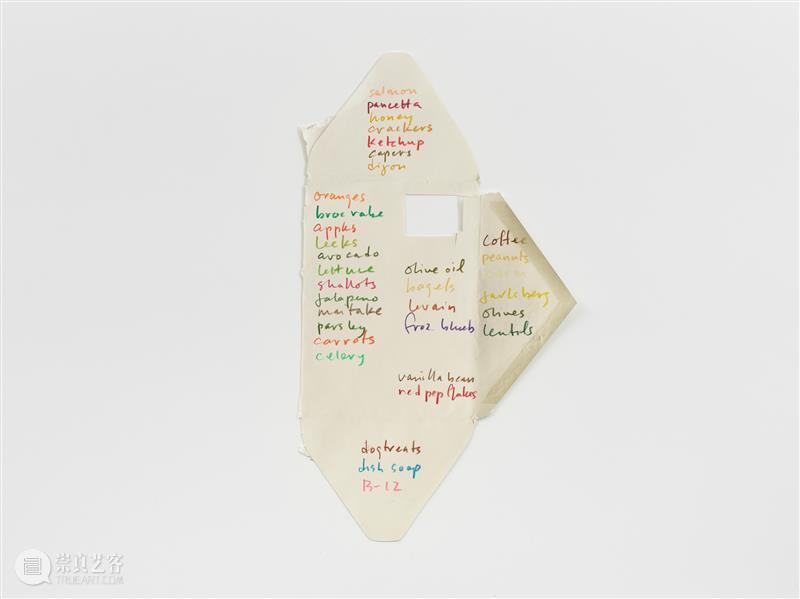 salmon
pancetta
honey
crackers
ketchup
capers
dijon
oranges
broc rabe
apples
leeks
avocado
lettuce
shallots
jalapeno
maitake
parsley
carrots
celery
olive oil
bagels
levain
froz blueb
vanilla bean
red pep flakes
coffee
peanuts
jarlsberg
olives
lentils
dogtreats
dish soap
B-12
崇真艺客
TRUEART.COM